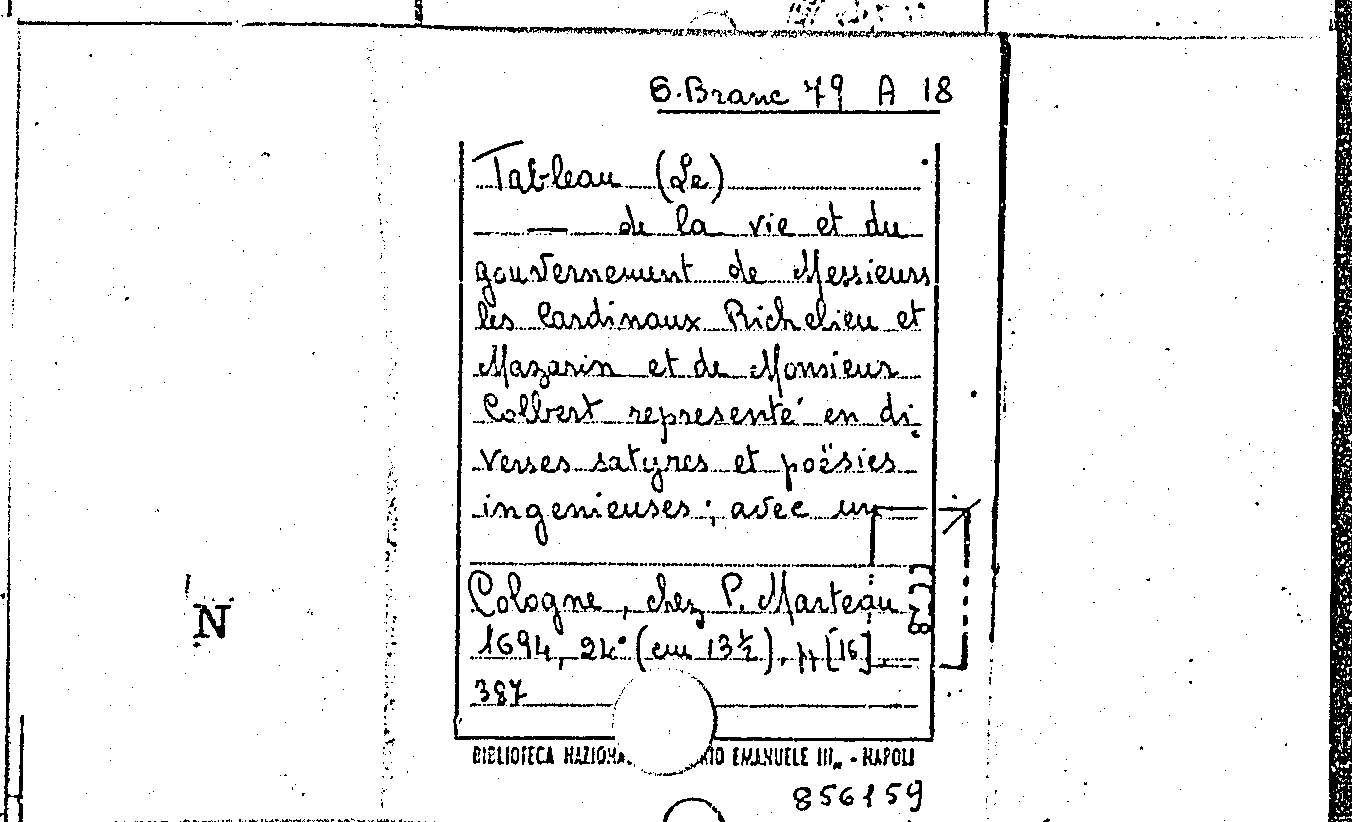 B.Branc 79 A 18
Tableau (Le)
— de la vie et du
gouvernement de Messieurs
les Cardinaux Richelieu et
Mazarin et de Monsieur
Colbert representé en di-
verses satyres et poësies
ingenieuses; avec un
Cologne, chez P. Marteau
1694, 24° (cm 13½), pp [16]
387
BIBLIOTECA NAZIONA IO EMANUELE III„ - NAPOLI
856159
N